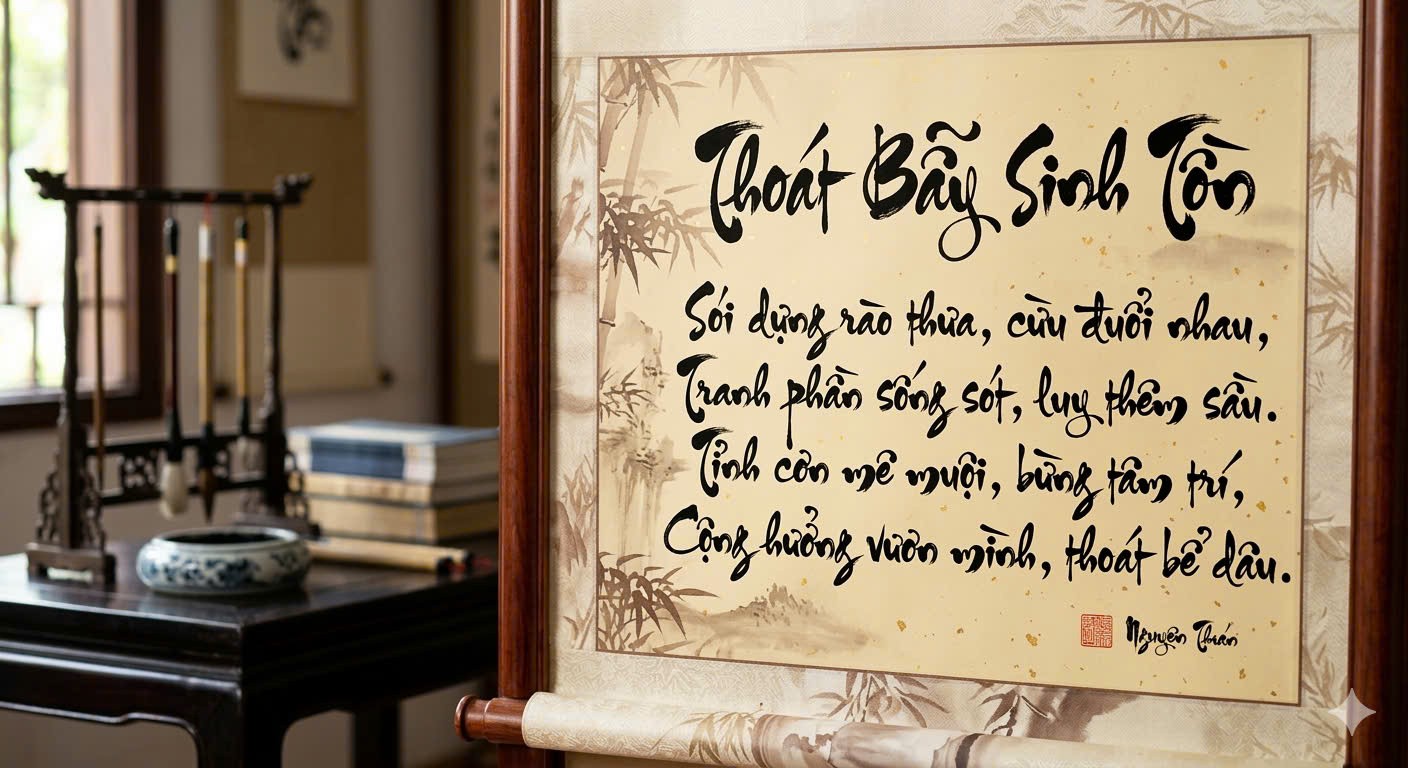 Thoát Bẫy Sinh Tồn
Sói dựng rào thưa, cừu đuổi nhau,
Tranh phần sống sót, lụy thêm sầu.
Tỉnh cơn mê muội, bừng tâm trí,
Cộng hưởng vươn mình, thoát bể dâu.
Nguyên